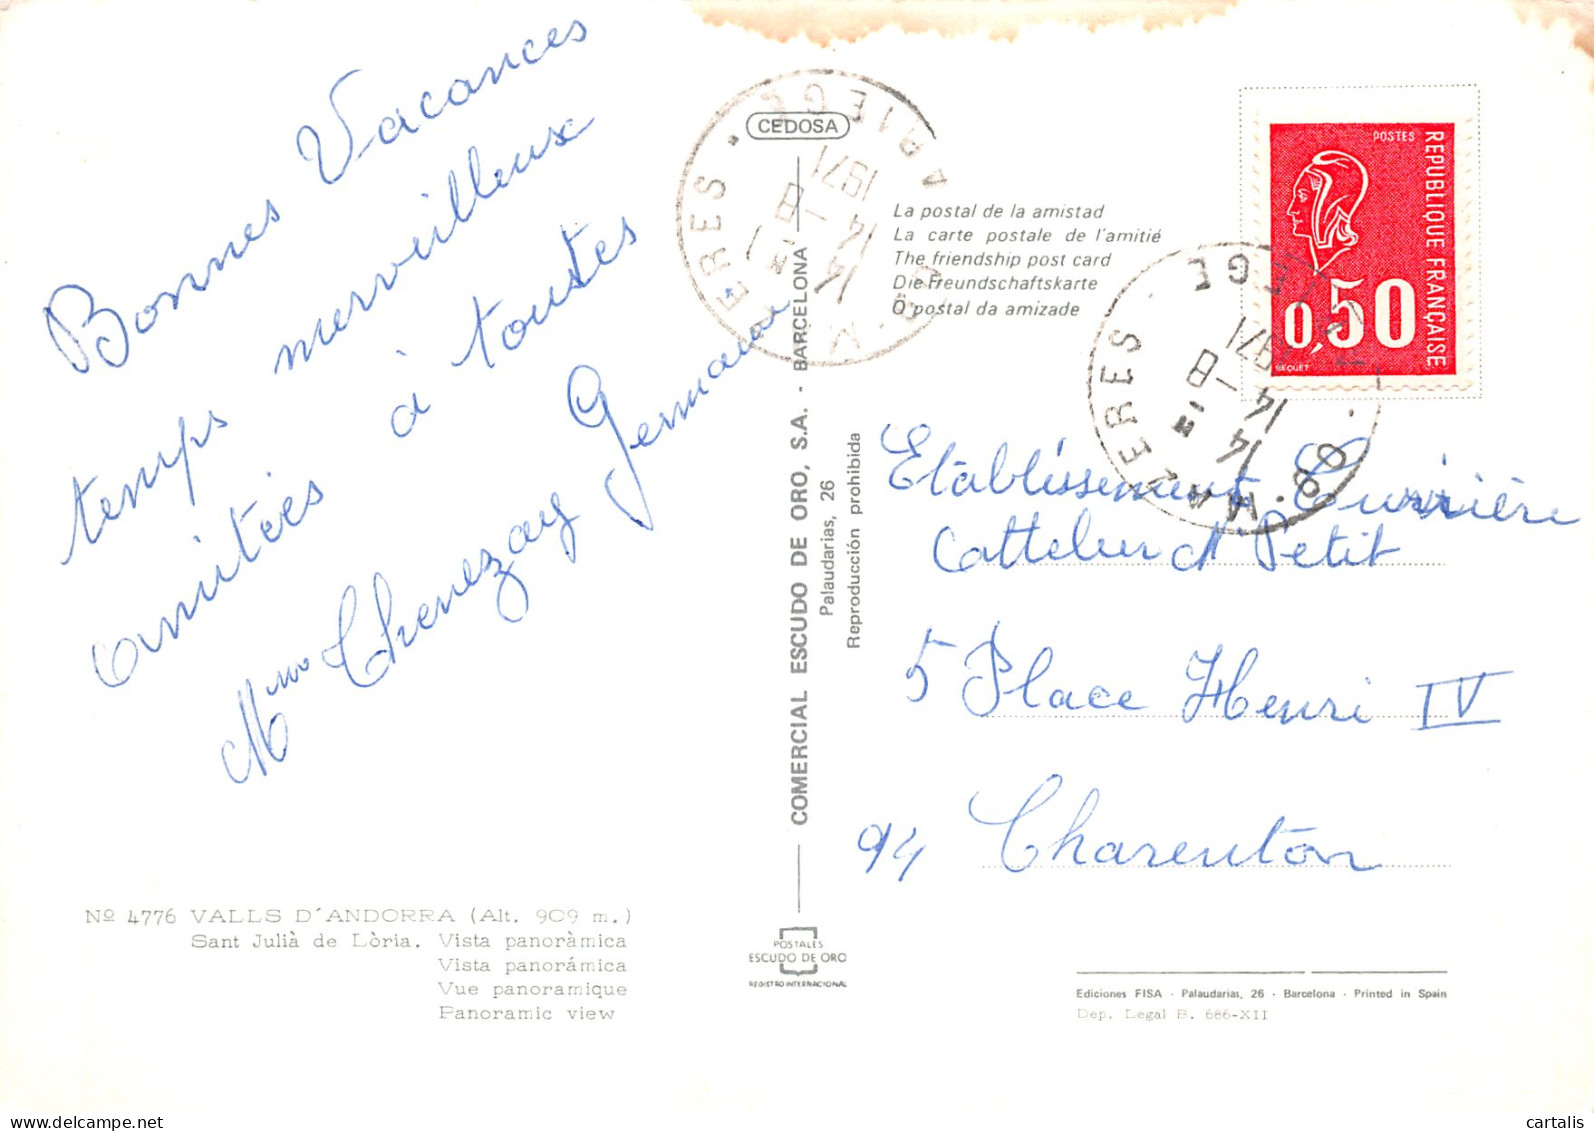 Bonnes Vacances
temps merveilleux
amitiés à toutes
Mme Chenezay Germaine
Nº 4776 VALLS D'ANDORRA (Alt. 909 m.)
Sant Julià de Lòria. Vista panoràmica
Vista panorámica
Vue panoramique
Panoramic view
CEDOSA
COMERCIAL ESCUDO DE ORO, S.A. - BARCELONA
Palaudarias, 26
Reproducción prohibida
POSTALES
ESCUDO DE ORO
REGISTRO INTERNACIONAL
La postal de la amistad
La carte postale de l'amitié
The friendship post card
Die Freundschaftskarte
O postal da amizade
MAZERES
ARIEGE
14 H
14 - 8
1971
POSTES
REPUBLIQUE FRANÇAISE
0,50
BEQUET
MAZERES
ARIEGE
14 H
14 - 8
1971
Etablissement
Petit
5 Place Henri IV
94 Charenton
Ediciones FISA - Palaudarias, 26 - Barcelona - Printed in Spain
Dep. Legal B. 686-XII
cartalis.com